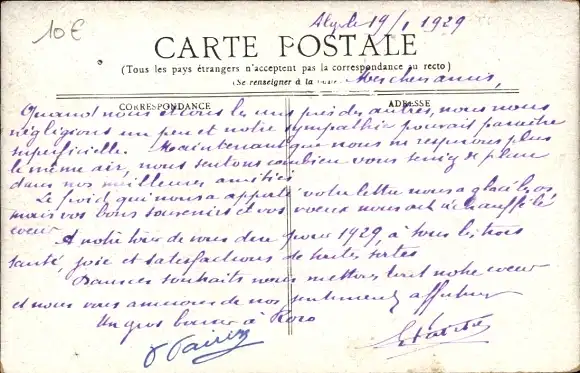 10€
19/1 1929
CARTE POSTALE
(Tous les pays étrangers n'acceptent pas la correspondance au recto)
(Se renseigner à la
Mes chers amis,
CORRESPONDANCE
ADRESSE
Quand nous étions les uns près des autres, nous nous
négligions un peu et notre sympathie pouvait paraître
superficielle. Maintenant que nous ne respirons plus
le même air, nous sentons combien vous
dans nos meilleures amitiés
Le froid qui nous a apporté votre lettre nous a glacé les os
mais vos bons souvenirs et vos voeux nous ont réchauffé le
coeur
A notre tour de vous dire pour 1929, à tous les trois
santé, joie et satisfactions de toutes sortes
Dans ces souhaits nous mettons tout notre coeur
et nous vous assurons de nos sentiments affectueux
Un gros baiser à Roro